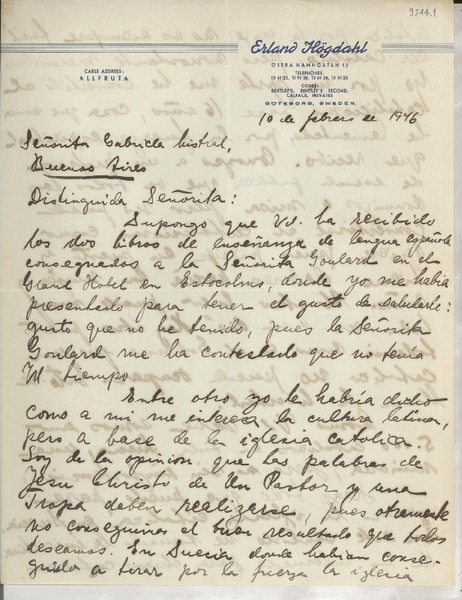 9544.1
Erland Högdahl
CABLE ADDRESS:
ALLFRUTA
ÖSTRA HAMNGATAN 12
TELEPHONES:
CODES:
BENTLEY'S, BENTLEY'S SECOND,
CALPACK, PRIVATES
GÖTEBORG, SWEDEN.
10 de febrero de 1946
Señorita Gabriela Mistral,
Buenos Aires
Distinguida Señorita:
Supongo que Vd. ha recibido
los dos libros de enseñanza de lengua española
consegnados a la Señorita Goulard en el
Grand Hotel en Estocolmo, donde yo me había
presentado para tener el gusto de saludarle:
gusto que no he tenido, pues la Señorita
Goulard me ha contestado que no tenía
Vd. tiempo
Entre otro yo le habría dicho
como a mi me interesa la cultura latina,
pero a base de la iglesia catolica.
Soy de la opinion que las palabras de
Jesu Christo de Un Pastor y una
Tropa deben realizarse, pues otramente
no conseguimos el buen resultado que todos
deseamos. En Suecia donde habian conse-
guido a tirar por la fuerza la iglesia